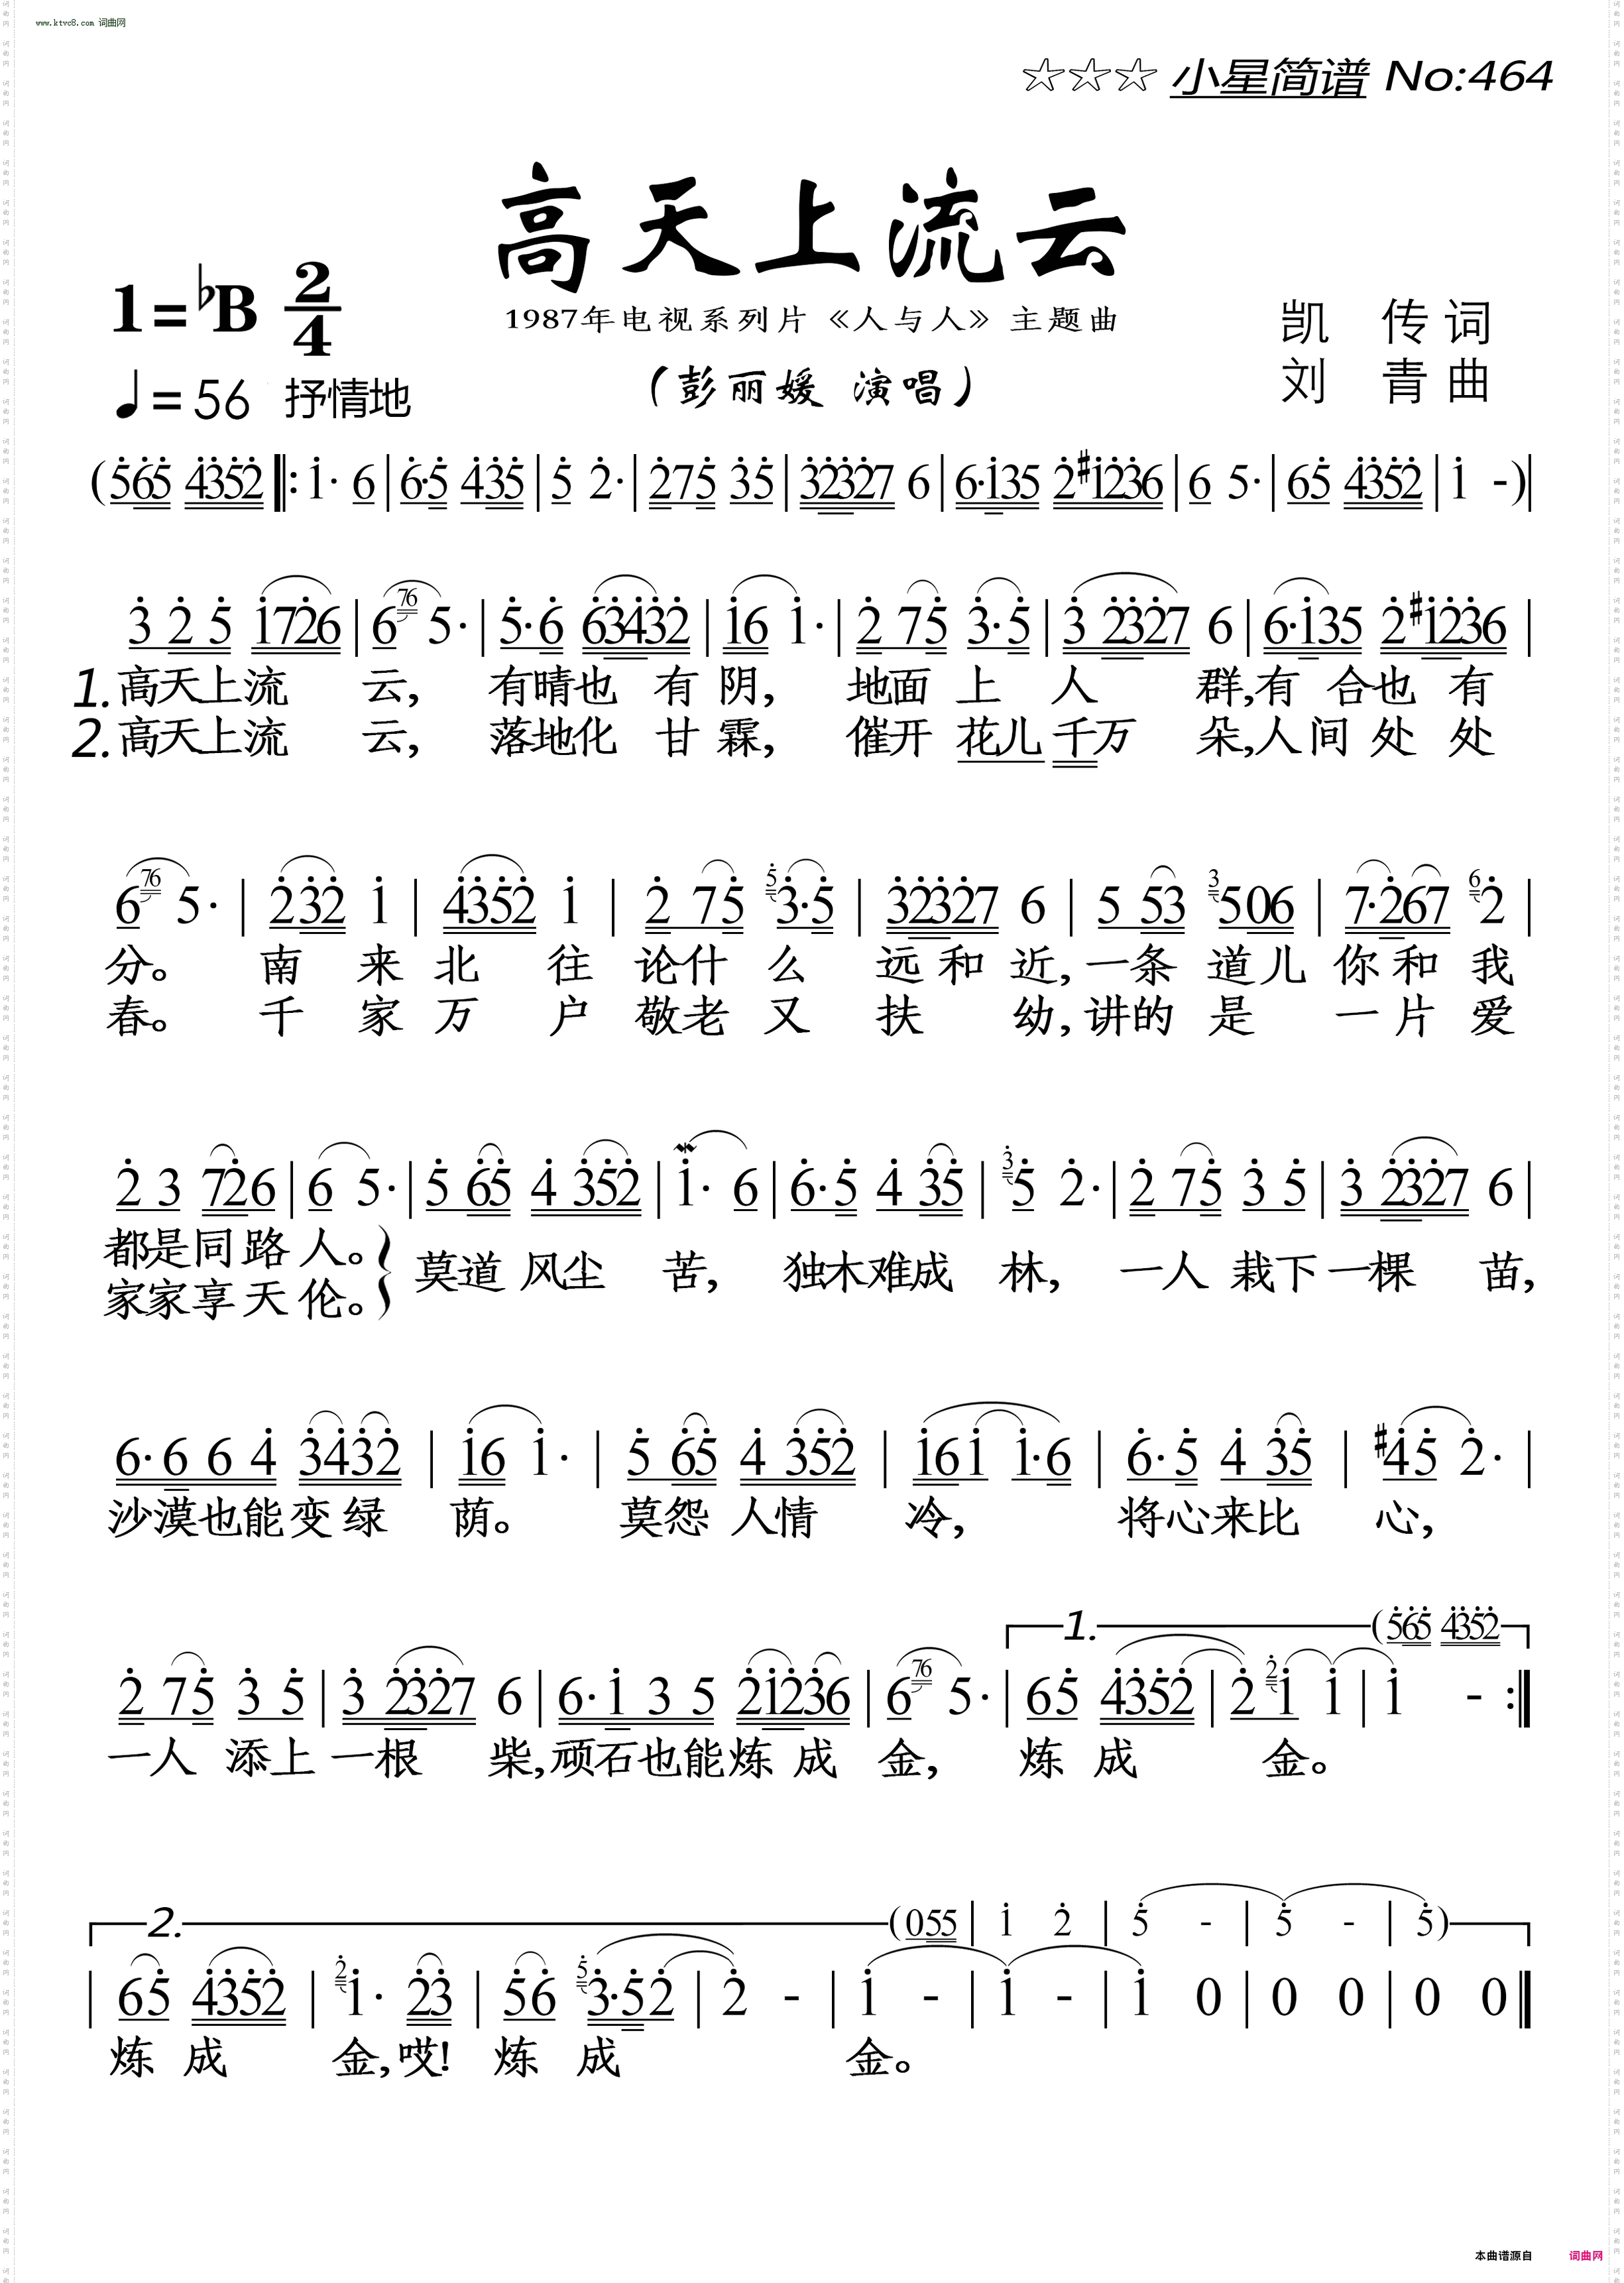 www.ktvc8.com 词曲网
☆☆☆ 小星简谱 No:464
高天上流云
1=♭B 2/4
1987年电视系列片《人与人》主题曲
凯 传 词
(彭丽媛 演唱)
刘 青 曲
♩=56 抒情地
(565 4352 ‖: 1· 6 | 6·5 435 | 5 2· | 275 35 | 32327 6 | 6·135 2#1236 | 6 5· | 65 4352 | 1 -)|
3 2 5 1726 | 6 76 5· | 5·6 63432 | 16 1· | 2 75 3·5 | 3 2327 6 | 6·135 2#1236 |
1.高天上流 云, 有晴也 有 阴, 地面 上 人 群,有 合也 有
2.高天上流 云, 落地化 甘 霖, 催开 花儿 千万 朵,人间 处 处
6 76 5· | 232 1 | 4352 1 | 2 75 5 3·5 | 32327 6 | 5 53 3 506 | 7·267 6 2 |
分。 南 来 北 往 论什 么 远 和 近,一条 道儿 你 和 我
春。 千 家 万 户 敬老 又 扶 幼,讲的 是 一 片 爱
2 3 726 | 6 5· | 5 65 4 352 | 1· 6 | 6·5 4 35 | 3 5 2· | 2 75 3 5 | 3 2327 6 |
都是同路 人。
家家享天 伦。
莫道 风尘 苦, 独木难成 林, 一人 栽下 一棵 苗,
6·6 6 4 3432 | 16 1· | 5 65 4 352 | 161 1·6 | 6·5 4 35 | #45 2· |
沙漠也能 变 绿 荫。 莫怨 人情 冷, 将心来比 心,
1. (565 4352
2 75 3 5 | 3 2327 6 | 6·1 3 5 21236 | 6 76 5· | 65 4352 | 2 2 1 1 | 1 - :‖
一人 添上 一根 柴,顽石也能炼 成 金, 炼 成 金。
2. (055 | 1 2 | 5 - | 5 - | 5)
| 65 4352 | 2 1· 23 | 56 5 3·52 | 2 - | 1 - | 1 - | 1 0 | 0 0 | 0 0 ‖
炼 成 金,哎! 炼 成 金。
本曲谱源自 词曲网